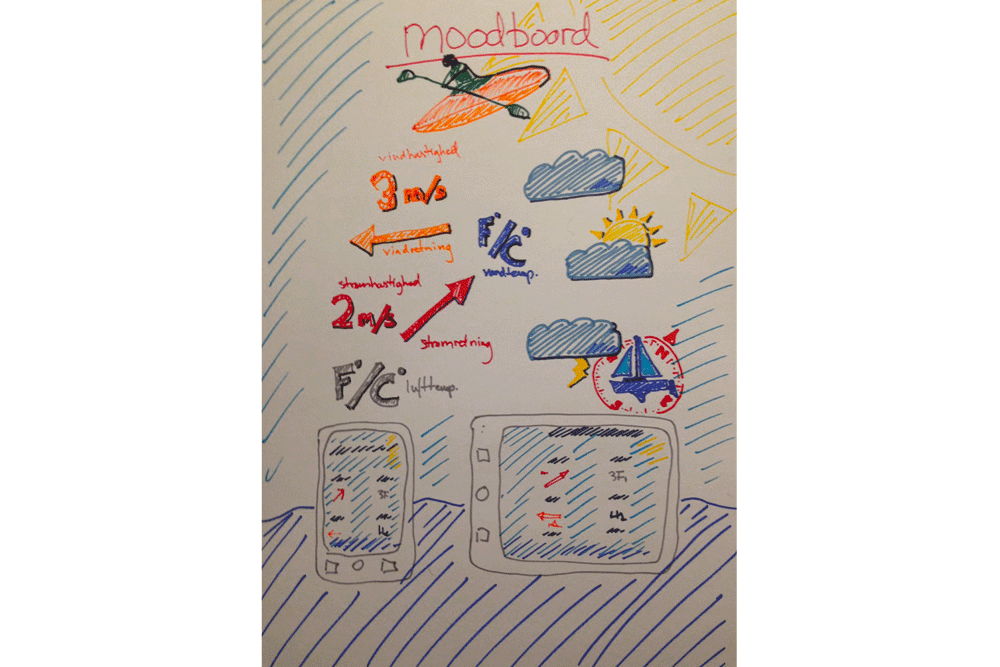 moodboard
vindhastighed
3 m/s
vindretning
F°/C°
vandtemp.
strømhastighed
2 m/s
strømretning
F°/C° lufttemp.
N